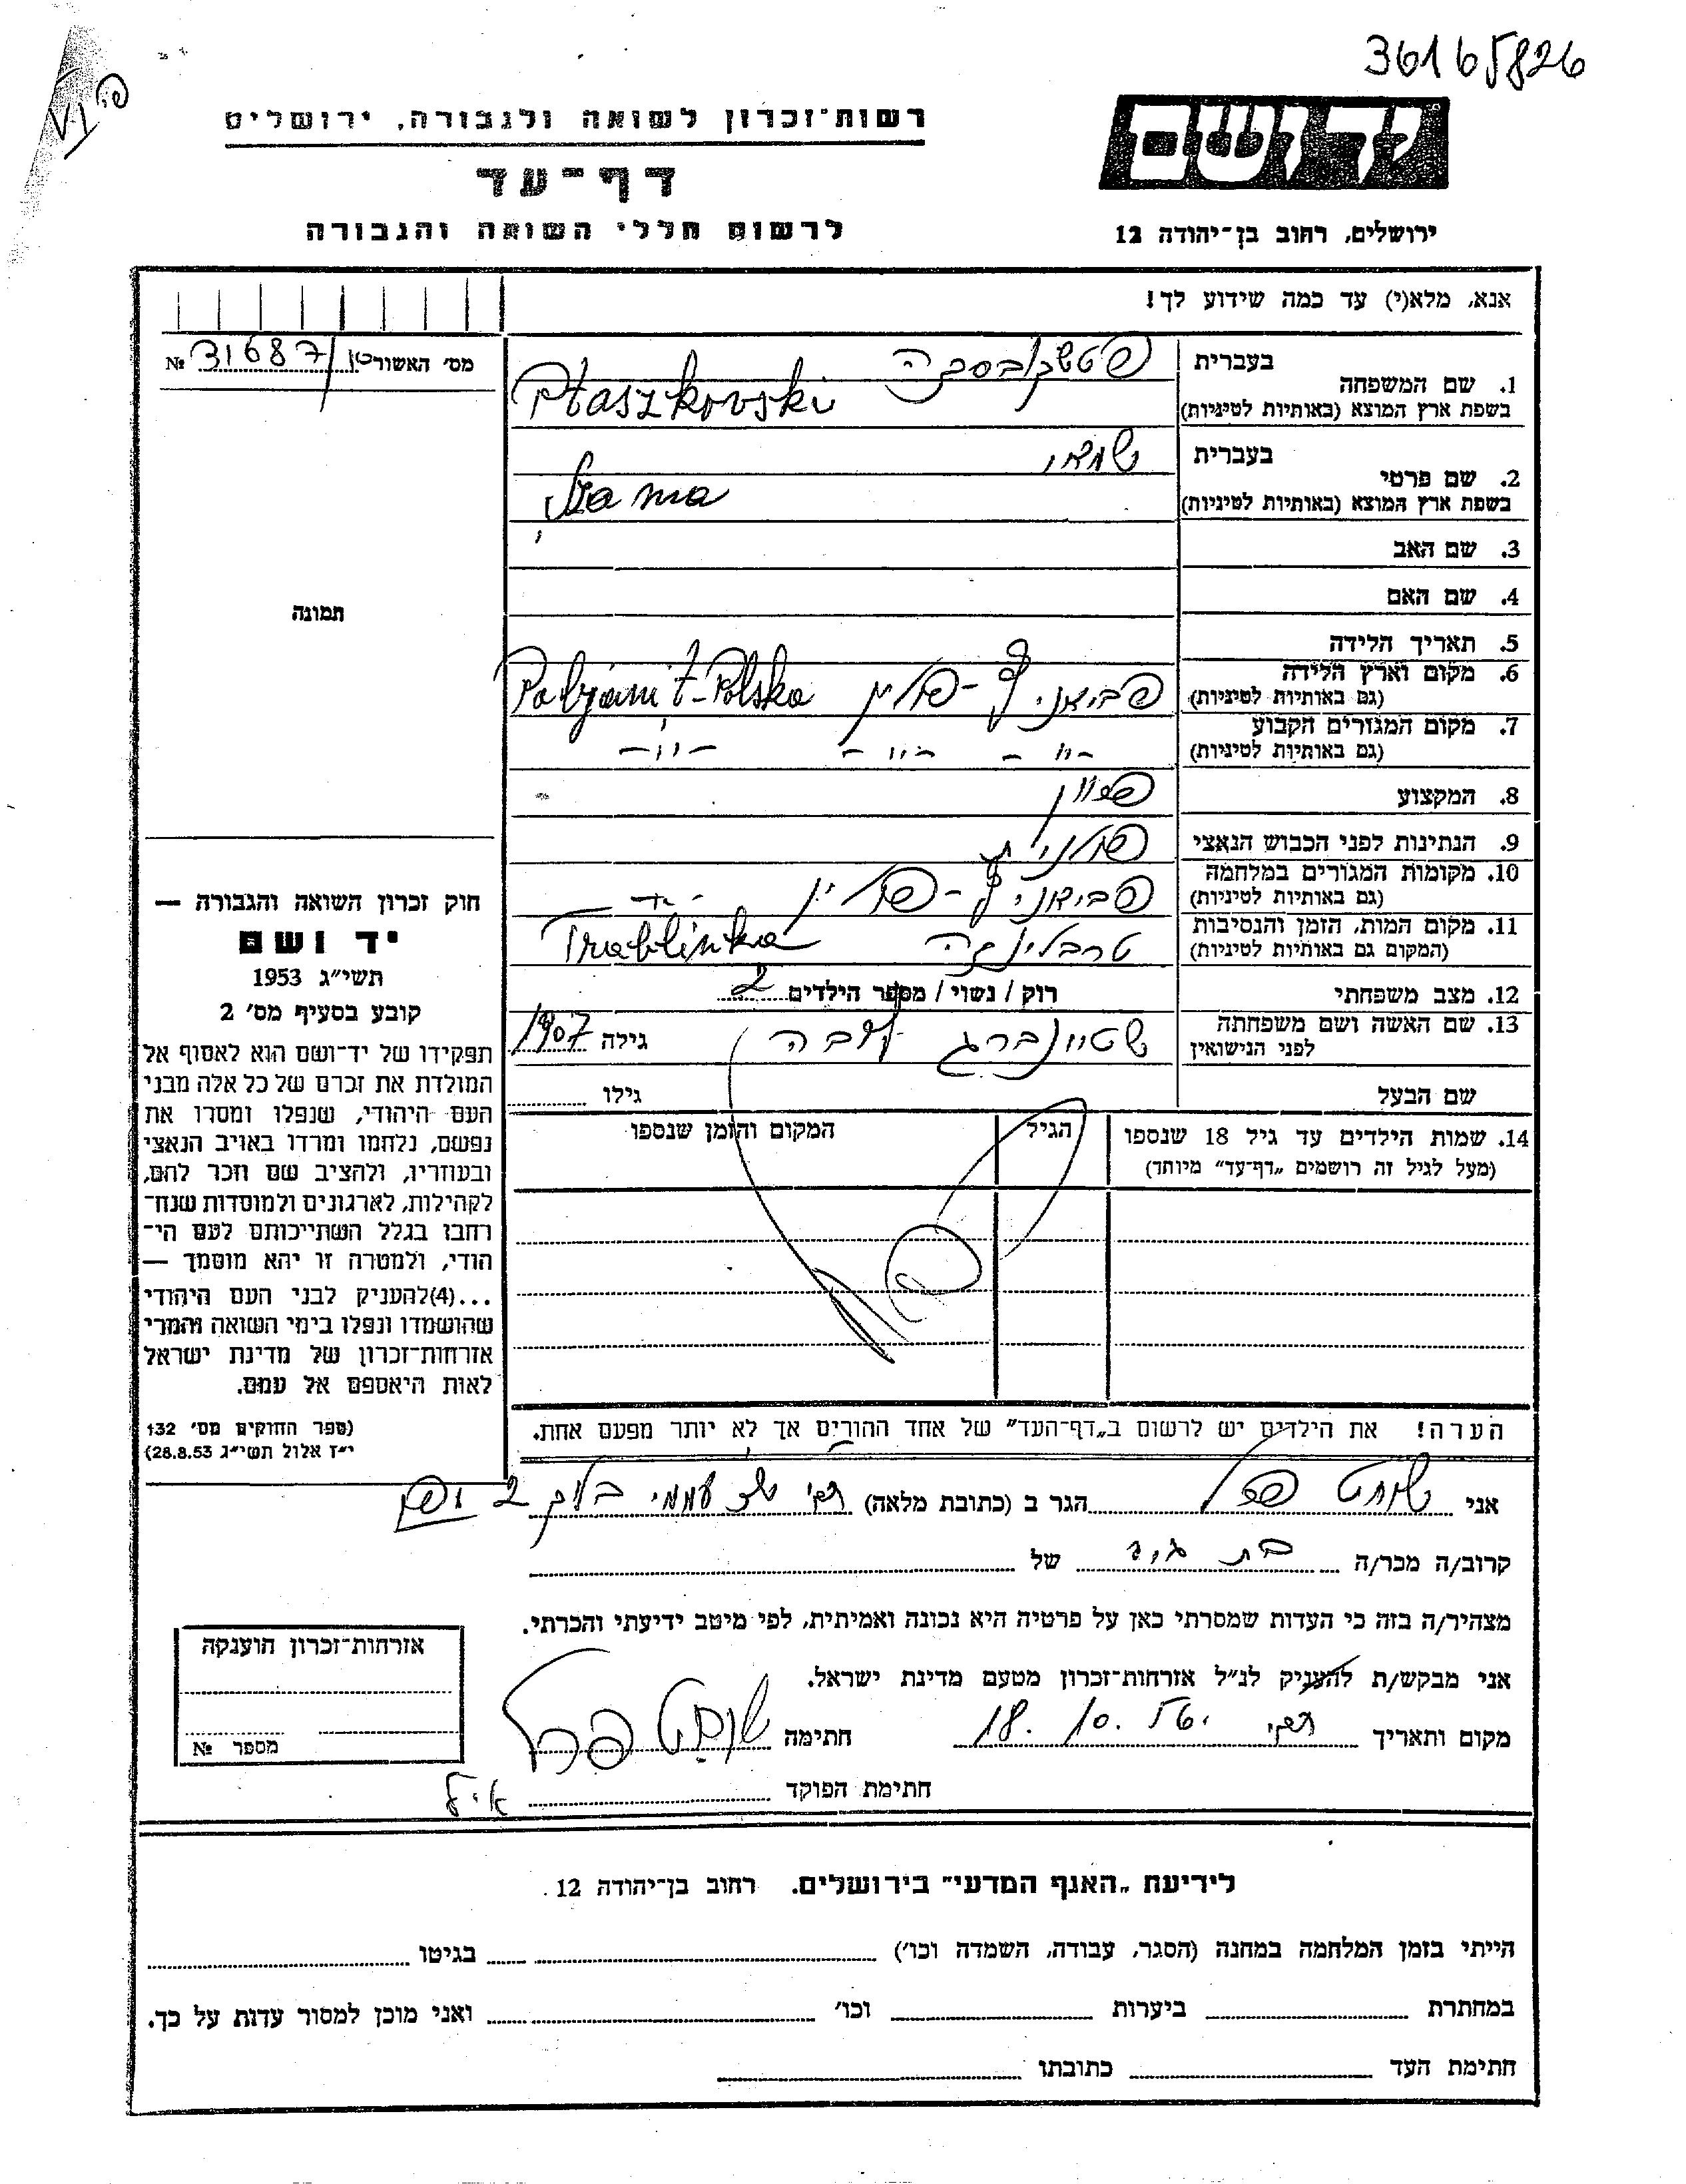 36165826
יד ושם
רשות־זכרון לשואה ולגבורה, ירושלים
דף־עד
לרשום חללי השואה והגבורה
ירושלים, רחוב בן־יהודה 12
אנא, מלא(י) עד כמה שידוע לך!
מס׳ האשור 31687 №
1. שם המשפחה
בעברית
בשפת ארץ המוצא (באותיות לטיניות)
Ptaszkovski
2. שם פרטי
בעברית
בשפת ארץ המוצא (באותיות לטיניות)
Szama
3. שם האב
4. שם האם
תמונה
5. תאריך הלידה
6. מקום וארץ הלידה
(גם באותיות לטיניות)
פביאניץ - פולין Pabjanit - Polska
7. מקום המגורים הקבוע
(גם באותיות לטיניות)
- " - - " - - " -
8. המקצוע
9. הנתינות לפני הכבוש הנאצי
פולנית
10. מקומות המגורים במלחמה
(גם באותיות לטיניות)
פביאניץ - פולין
11. מקום המות, הזמן והנסיבות
(המקום גם באותיות לטיניות)
טרבלינקה Trablinka
12. מצב משפחתי
רוק / נשוי / מספר הילדים 2
13. שם האשה ושם משפחתה
לפני הנישואין
שטיינברג גילה 1907
שם הבעל גילו
14. שמות הילדים עד גיל 18 שנספו
(מעל לגיל זה רושמים „דף־עד״ מיוחד)
הגיל
המקום והזמן שנספו
חוק זכרון השואה והגבורה —
יד ושם
תשי״ג 1953
קובע בסעיף מס׳ 2
תפקידו של יד־ושם הוא לאסוף אל
המולדת את זכרם של כל אלה מבני
העם היהודי, שנפלו ומסרו את
נפשם, נלחמו ומרדו באויב הנאצי
ובעוזריו, ולהציב שם וזכר להם,
לקהילות, לארגונים ולמוסדות שנח־
רחבו בגלל השתייכותם לעם הי־
הודי, ולמטרה זו יהא מוסמך —
...(4)להעניק לבני העם היהודי
שהושמדו ונפלו בימי השואה והמרי
אזרחות־זכרון של מדינת ישראל
לאות היאספם אל עמם.
(ספר החוקים מס׳ 132
י״ז אלול תשי״ג 28.8.53)
הערה! את הילדים יש לרשום ב„דף־העד״ של אחד ההורים אך לא יותר מפעם אחת.
אני שוחט פרל הגר ב (כתובת מלאה)
קרוב/ה מכר/ה בת דוד של
מצהיר/ה בזה כי העדות שמסרתי כאן על פרטיה היא נכונה ואמיתית, לפי מיטב ידיעתי והכרתי.
אני מבקש/ת להעניק לנ״ל אזרחות־זכרון מטעם מדינת ישראל.
מקום ותאריך 18. 10. חתימה שוחט פרל
חתימת הפוקד
אזרחות־זכרון הוענקה
מספר №
לידיעת „האגף המדעי״ בירושלים. רחוב בן־יהודה 12.
הייתי בזמן המלחמה במחנה (הסגר, עבודה, השמדה וכו׳) בגיטו
במחתרת ביערות וכו׳ ואני מוכן למסור עדות על כך.
חתימת העד כתובתו